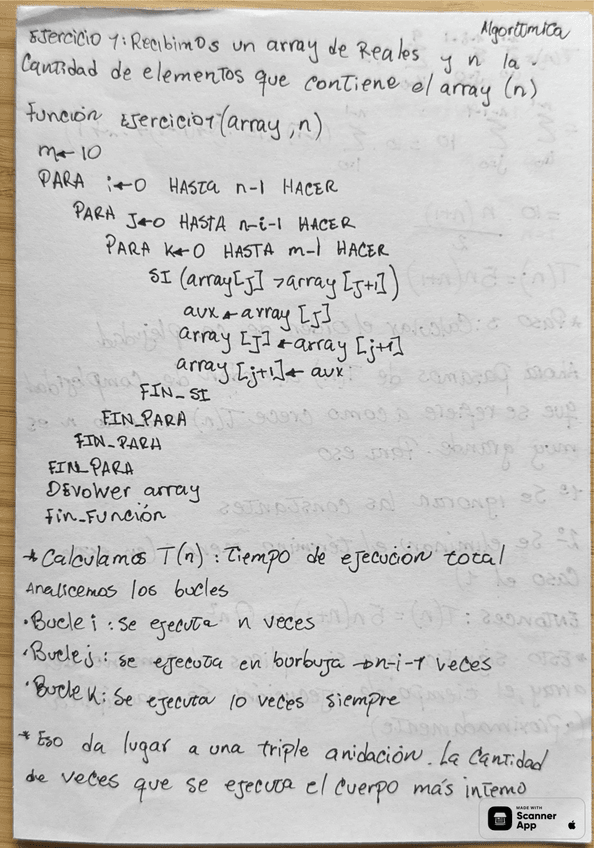 Algorítmica
Ejercicio 1: Recibimos un array de Reales y n la
Cantidad de elementos que contiene el array (n)
Función Ejercicio1(array, n)
m← 10
PARA i←0 HASTA n-1 HACER
PARA J←0 HASTA n-i-1 HACER
PARA K←0 HASTA m-1 HACER
SI (array[J] >array [J+1])
aux ← array [J]
array [J] ← array [j+1]
array [j+1] ← aux
FIN_SI
FIN_PARA
FIN_PARA
FIN_PARA
Devolver array
Fin_Función
*Calculamos T(n): Tiempo de ejecución total
Analicemos los bucles
•Bucle i: Se ejecuta n veces
•Bucle j: se ejecuta en burbuja → n-i-1 veces
•Bucle K: Se ejecuta 10 veces siempre
* Eso da lugar a una triple anidación. La Cantidad
de veces que se ejecuta el cuerpo más interno
MADE WITH
Scanner
App